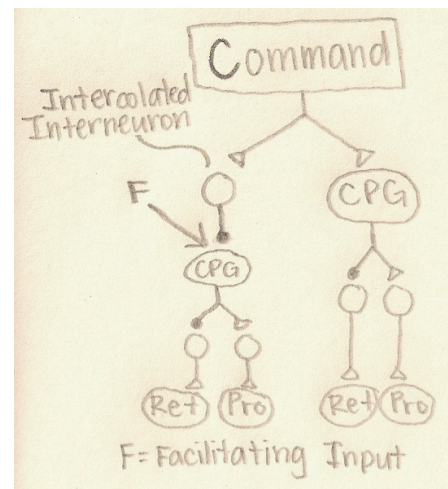 Command
Intercolated
Interneuron
F
CPG
CPG
Ret Pro
Ret Pro
F = Facilitating Input